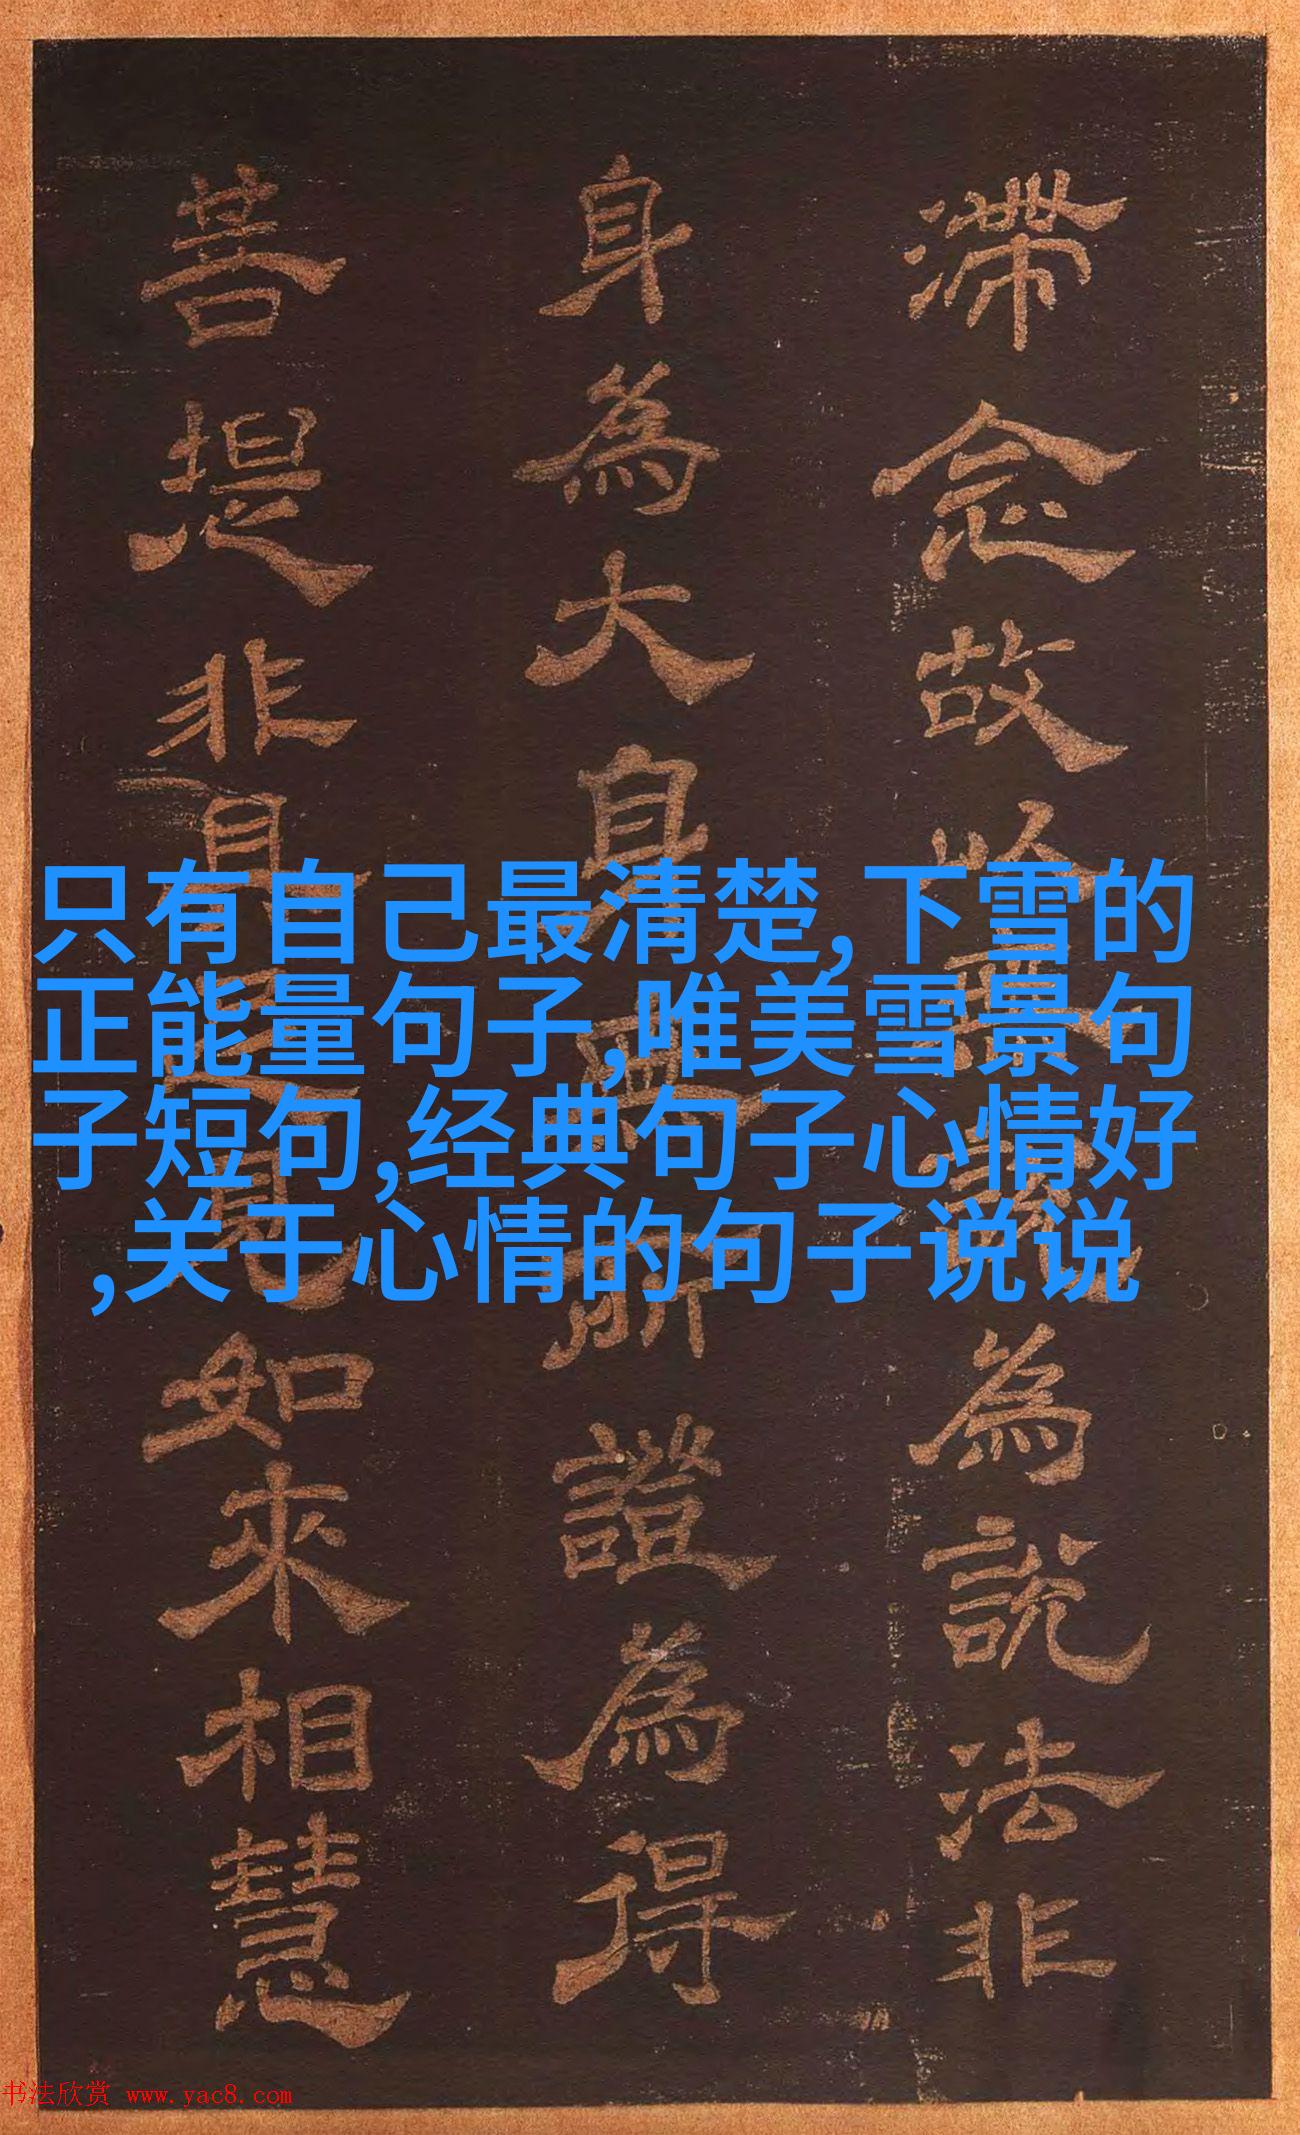 只有自己最清楚,下雪的
正能量句子,唯美雪景句
子短句,经典句子心情好
,关于心情的句子说说
滯念故為說法非
身為大身所證為得
菩提非具見如來相慧
书法欣赏 www.yac8.com